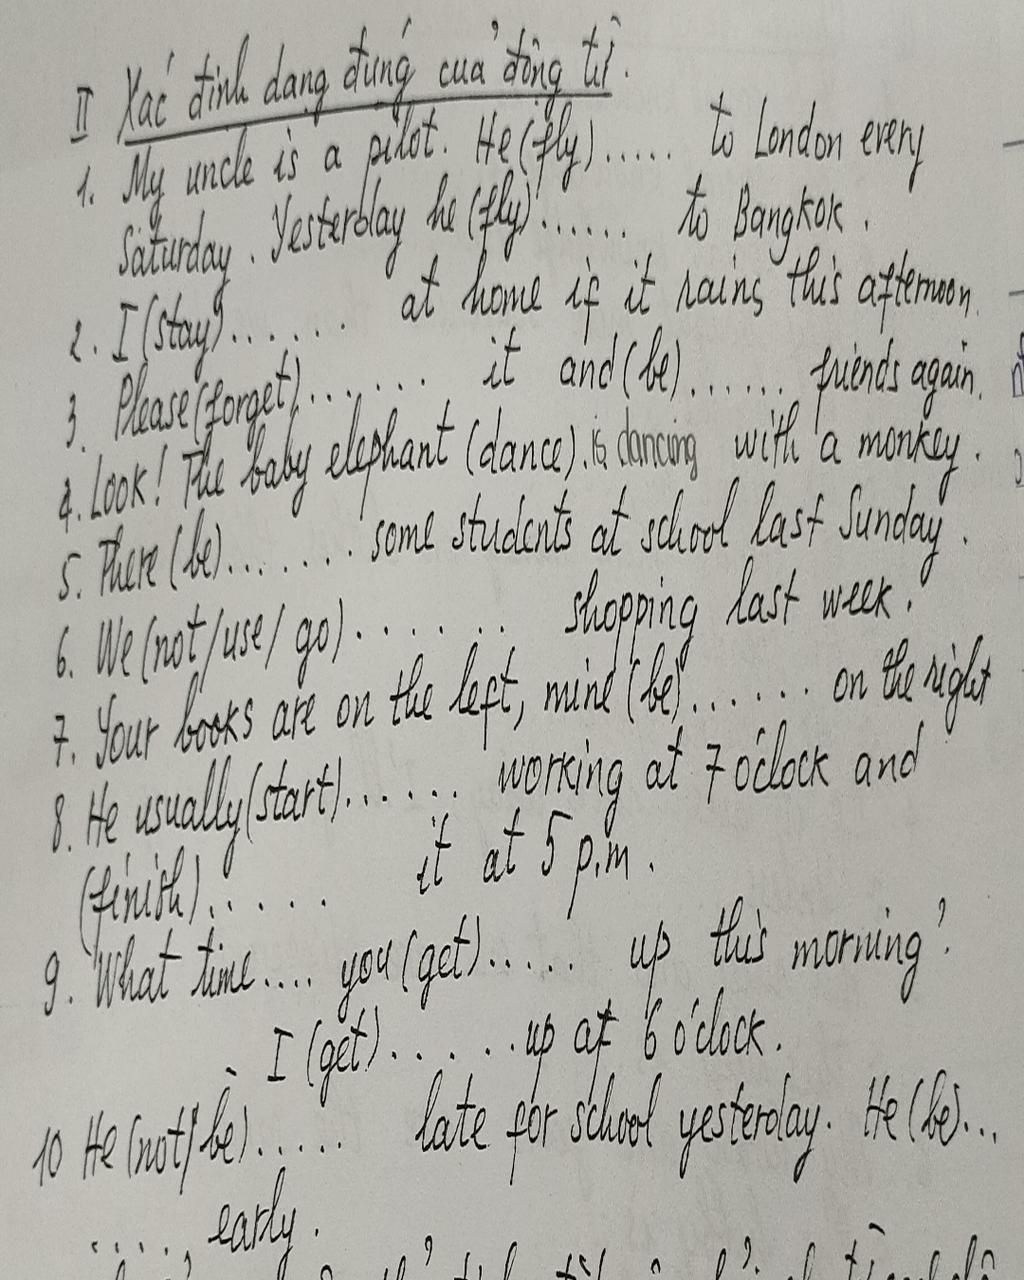 II Xác đinh dang đúng của động từ.
1. My uncle is a pilot. He (fly)..... to London every
Saturday. Yesterday he (fly)...... to Bangkok.
2. I (stay)....... at home if it rains this afternoon.
3. Please (forget)....... it and (be)...... friends again.
4. Look! The baby elephant (dance). is dancing with a monkey.
5. There (be)....... some students at school last Sunday.
6. We (not/use/go)....... shopping last week.
7. Your books are on the left, mine (be)...... on the right
8. He usually (start)...... working at 7 o'clock and
(finish)..... it at 5 p.m.
9. What time.... you (get)..... up this morning?
- I (get)...... up at 6 o'clock.
10 He (not/be)..... late for school yesterday. He (be)...
....., early.